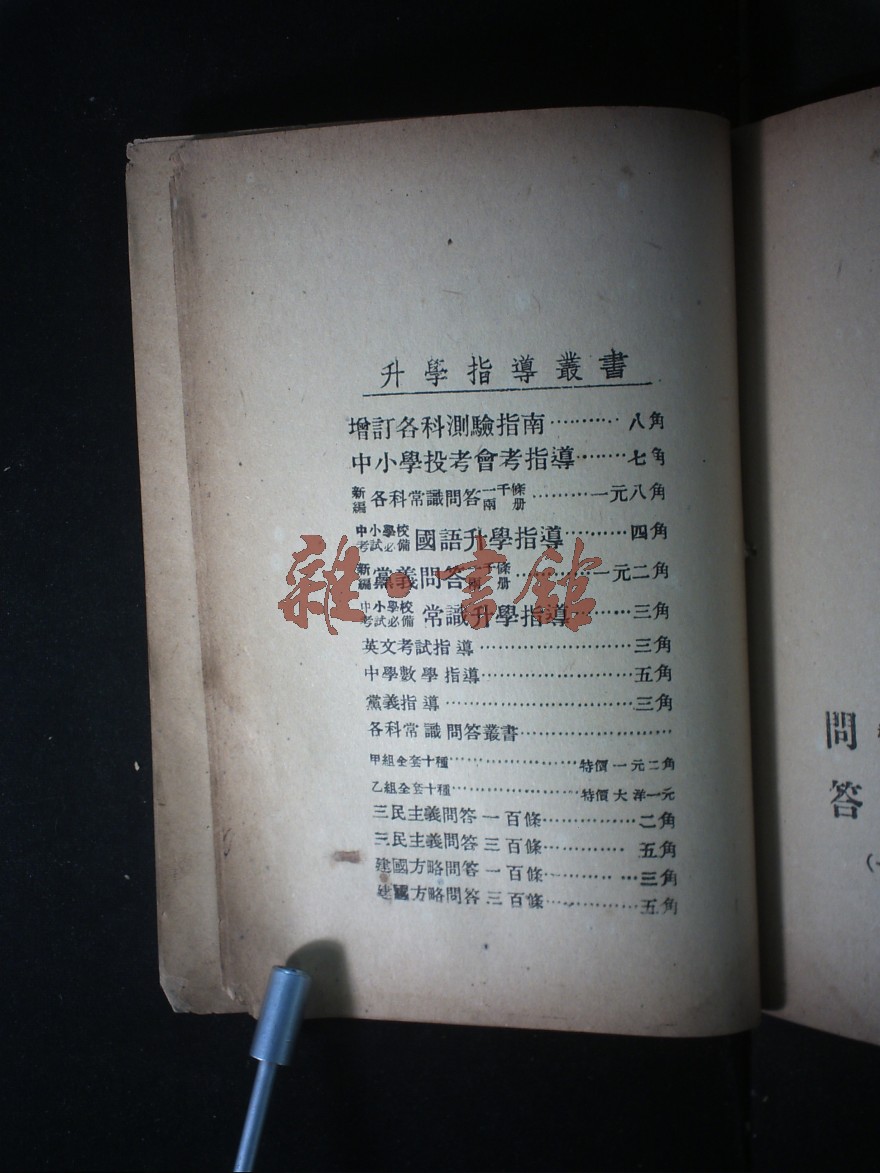 升學指導叢書
增訂各科測驗指南…………八角
中小學投考會考指導………七角
新編各科常識問答一千條兩册…………一元八角
中小學校考試必備國語升學指導………四角
新編黨義問答一千條兩册…………一元二角
中小學校考試必備常識升學指導………三角
英文考試指導……………………三角
中學數學指導……………………五角
黨義指導…………………………三角
各科常識問答叢書……………………
甲組全套十種……………………特價一元二角
乙組全套十種……………………特價大洋一元
三民主義問答一百條……………二角
三民主義問答三百條…………… 五角
建國方略問答一百條……………三角
建國方略問答三百條……………五角
雜·書館
問答